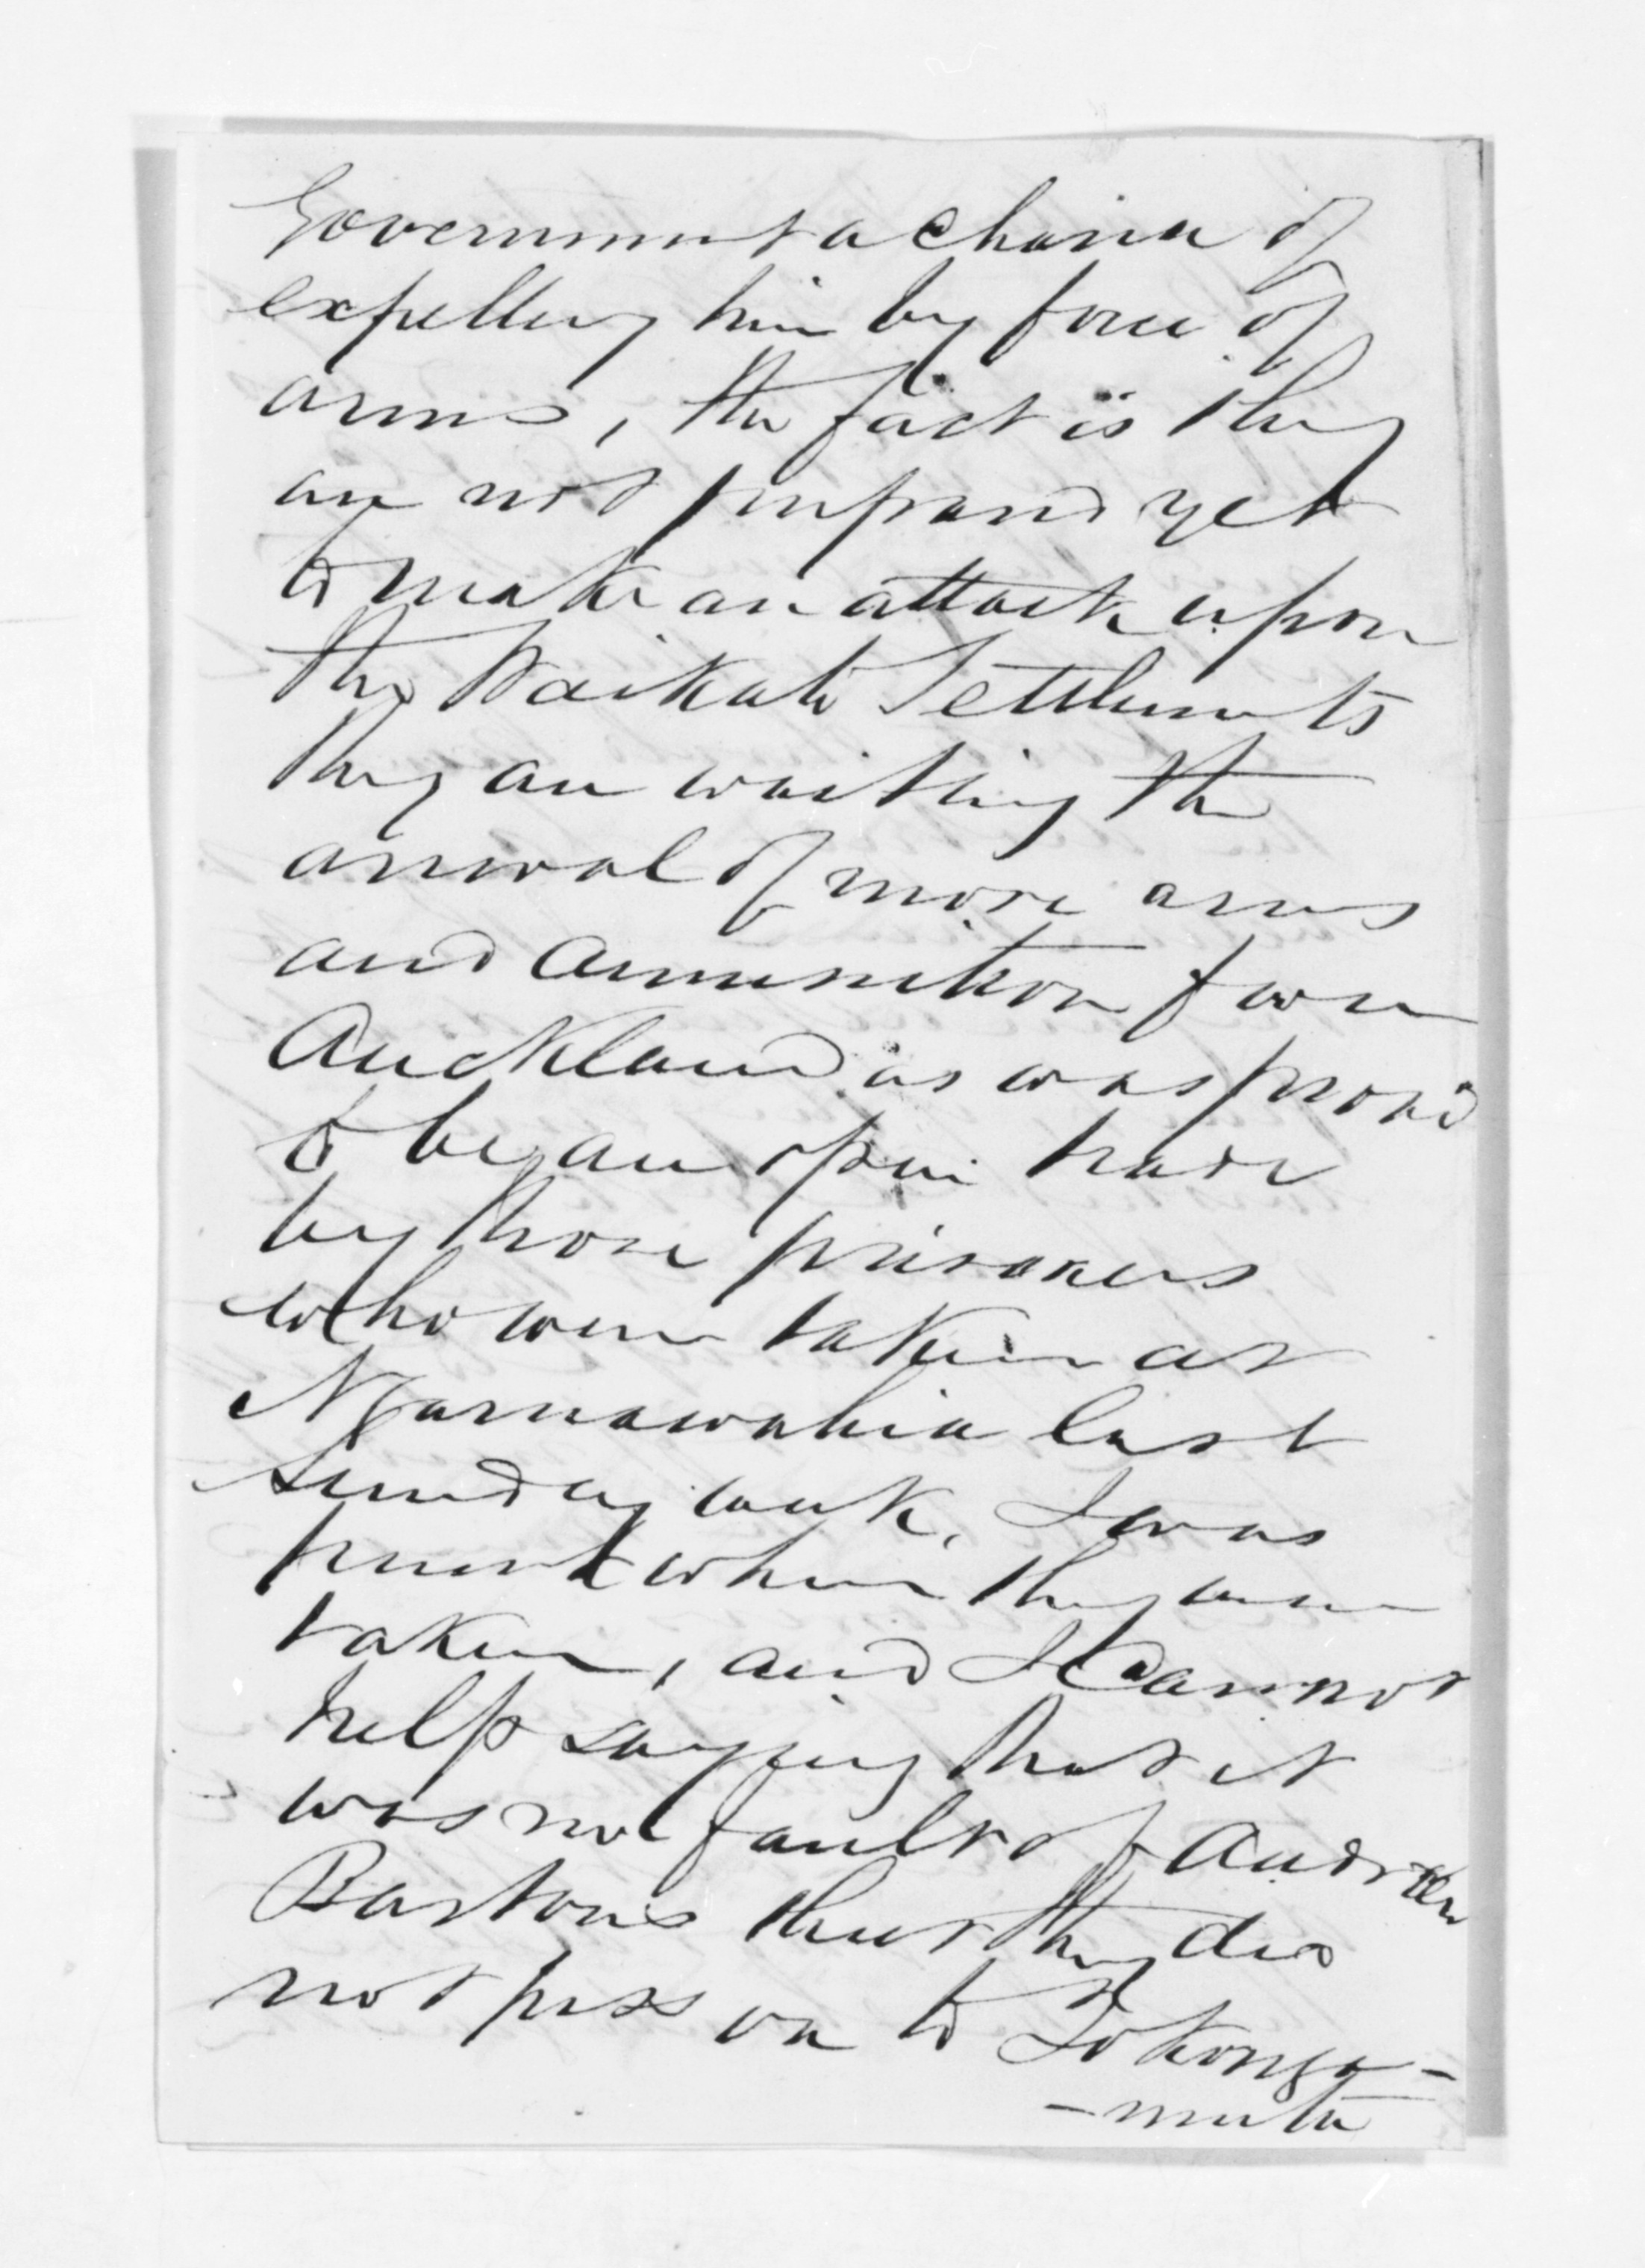 Government a chance of
expelling him by force of
arms, the fact is they
are not prepared yet
to make an attack upon
the Waikato Settlements
they are waiting the
arrival of more arms
and amunition from
Auckland as was proved
to be an open trade
by those prisoners
who were taken at
Ngarnawahia last
Sunday week. I was
present when they were
taken, and I cannot
help saying that it
was not fault of Andrew
Bartons that they did
not pass on to Tokanga-
-muta